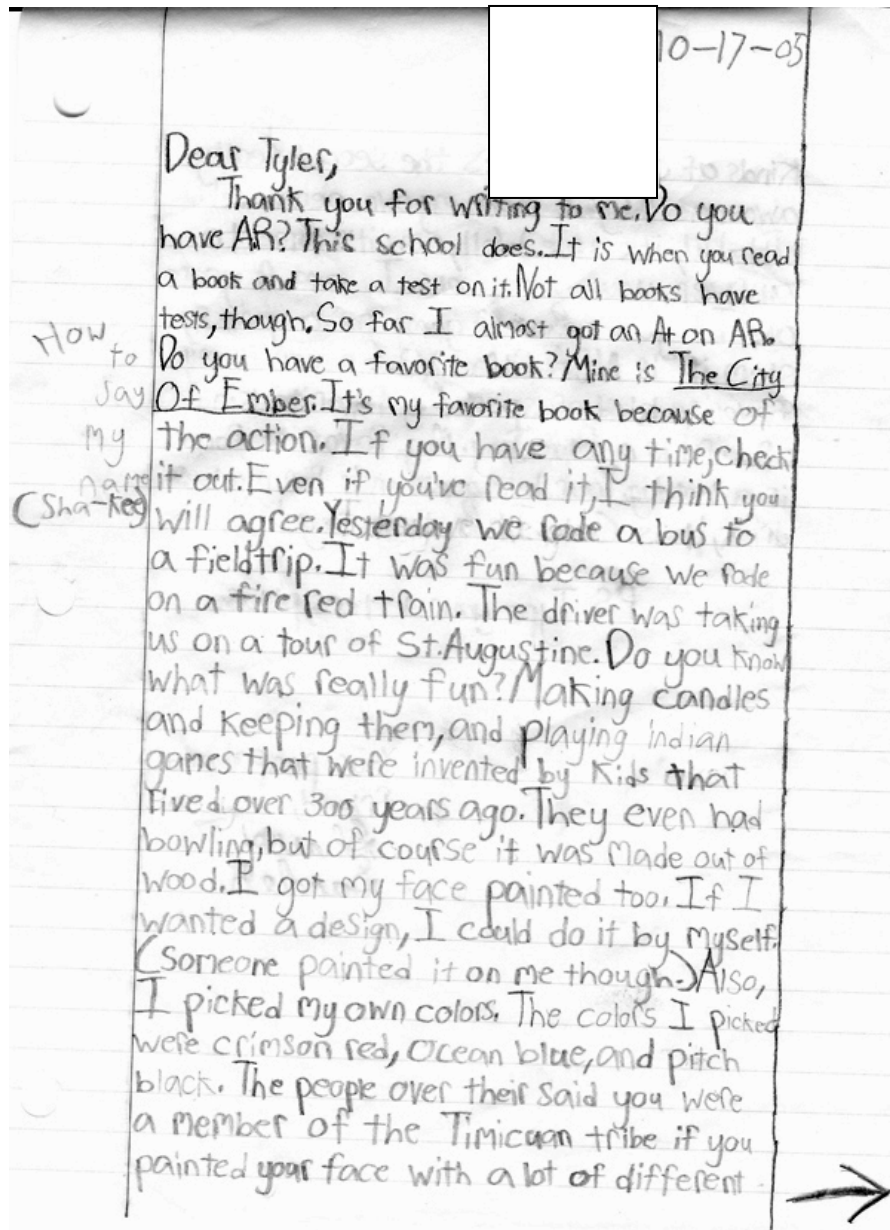 10-17-05
Dear Tyler,
Thank you for writing to me. Do you
have AR? This school does. It is when you read
a book and take a test on it. Not all books have
tests, though. So far I almost got an A+ on AR.
Do you have a favorite book? Mine is The City
Of Ember. It's my favorite book because of
the action. If you have any time, check
it out. Even if you've read it, I think you
will agree. Yesterday we rode a bus to
a fieldtrip. It was fun because we rode
on a fire red train. The driver was taking
us on a tour of St. Augustine. Do you know
what was really fun? Making candles
and keeping them, and playing indian
games that were invented by kids that
lived over 300 years ago. They even had
bowling, but of course it was made out of
wood. I got my face painted too. If I
wanted a design, I could do it by myself.
(someone painted it on me though.) Also,
I picked my own colors. The colors I picked
were crimson red, ocean blue, and pitch
black. The people over their said you were
a member of the Timicuan tribe if you
painted your face with a lot of different
How
to
say
my
name
(Sha-kee)